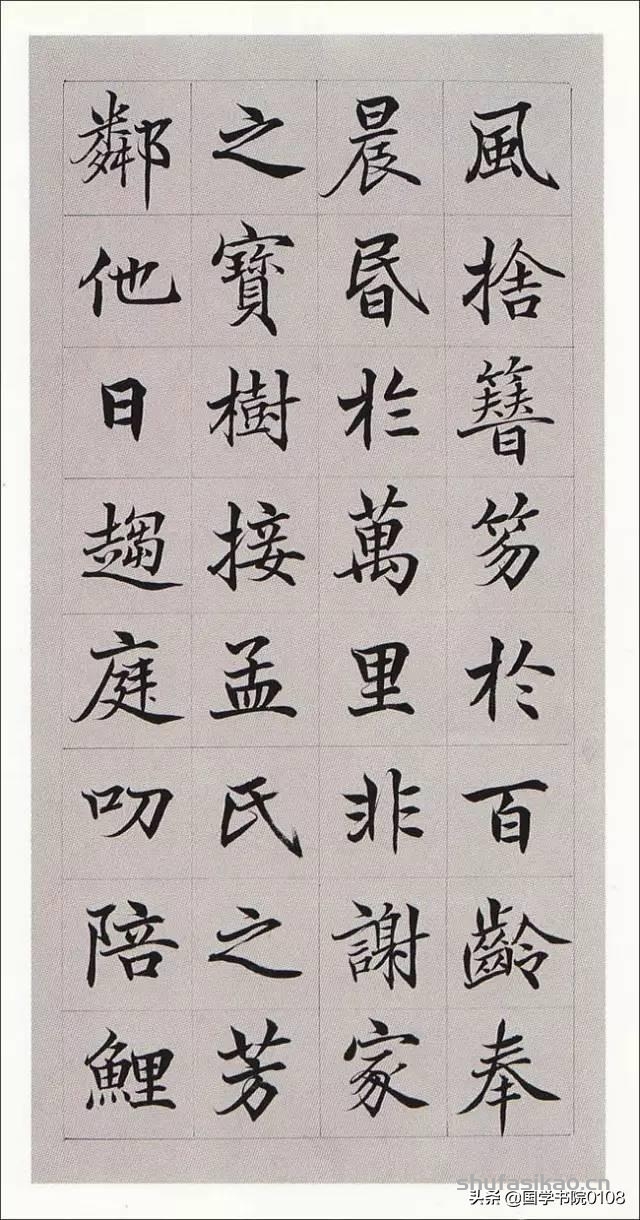 風捨簪笏於百齡奉
晨昬於萬里非謝家
之寶樹接孟氏之芳
鄰他日趨庭叨陪鯉
shufasikao.cn
头条 @国学书院0108